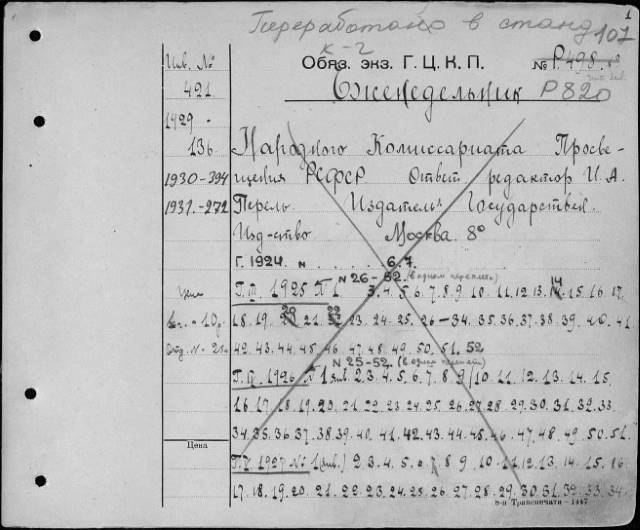 1
Переработано в станд
107
к-2
Обяз. экз. Г. Ц. К. П. № Р-498
Еженедельник Р820
Инв. №
421
1929 -
136
1930-394
1931-272
Народного Комиссариата Просве-
щения РСФСР Ответ редактор И. А.
Перель. Издатель: Государствен.
Изд-ство Москва. 8°
Г. 1924. N . . . . . 6.7.
N 26-52. (в одном переплете)
Г. III. 1925 N 1. 3. 4. 5. 6. 7. 8. 9. 10. 11. 12. 13. 14. 15. 16. 17.
18. 19. 20 21. 22 23. 24. 25. 26 - 34. 35. 36. 37. 38. 39. 40. 41
42. 43. 44. 45. 46. 47. 48. 49. 50. 51. 52
N 25-52. (в одном переплете)
Г. IV. 1926 N 1 2. 3. 4. 5. 6. 7. 8. 9/10. 11. 12. 13. 14. 15.
16. 17. 18. 19. 20. 21. 22. 23. 24. 25. 26. 27. 28. 29. 30. 31. 32. 33.
34. 35. 36. 37. 38. 39. 40. 41. 42. 43. 44. 45. 46. 47. 48. 49. 50. 51.
Г. V. 1927 N 1 (янв.) 2 3. 4. 5. 6. 7 8. 9. 10. 11. 12. 13. 14. 15. 16
17. 18. 19. 20. 21. 22. 23. 24. 25. 26. 27. 28. 29. 30. 31. 32. 33. 34.
Цена
Цена
8-я Транспечати - 1447